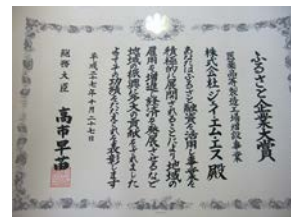 ふるさと企業大賞
医薬品等製造工場増設事業
株式会社ジェイ・エム・エス 殿
あなたはふるさと融資を活用し事業を
積極的に展開されることにより地域の
雇用を増進し経済を発展させるなど
地域の振興に多大の貢献をされました
よってその功績をたたえこれを表彰します
平成二十七年十月二十七日
総務大臣 高市早苗